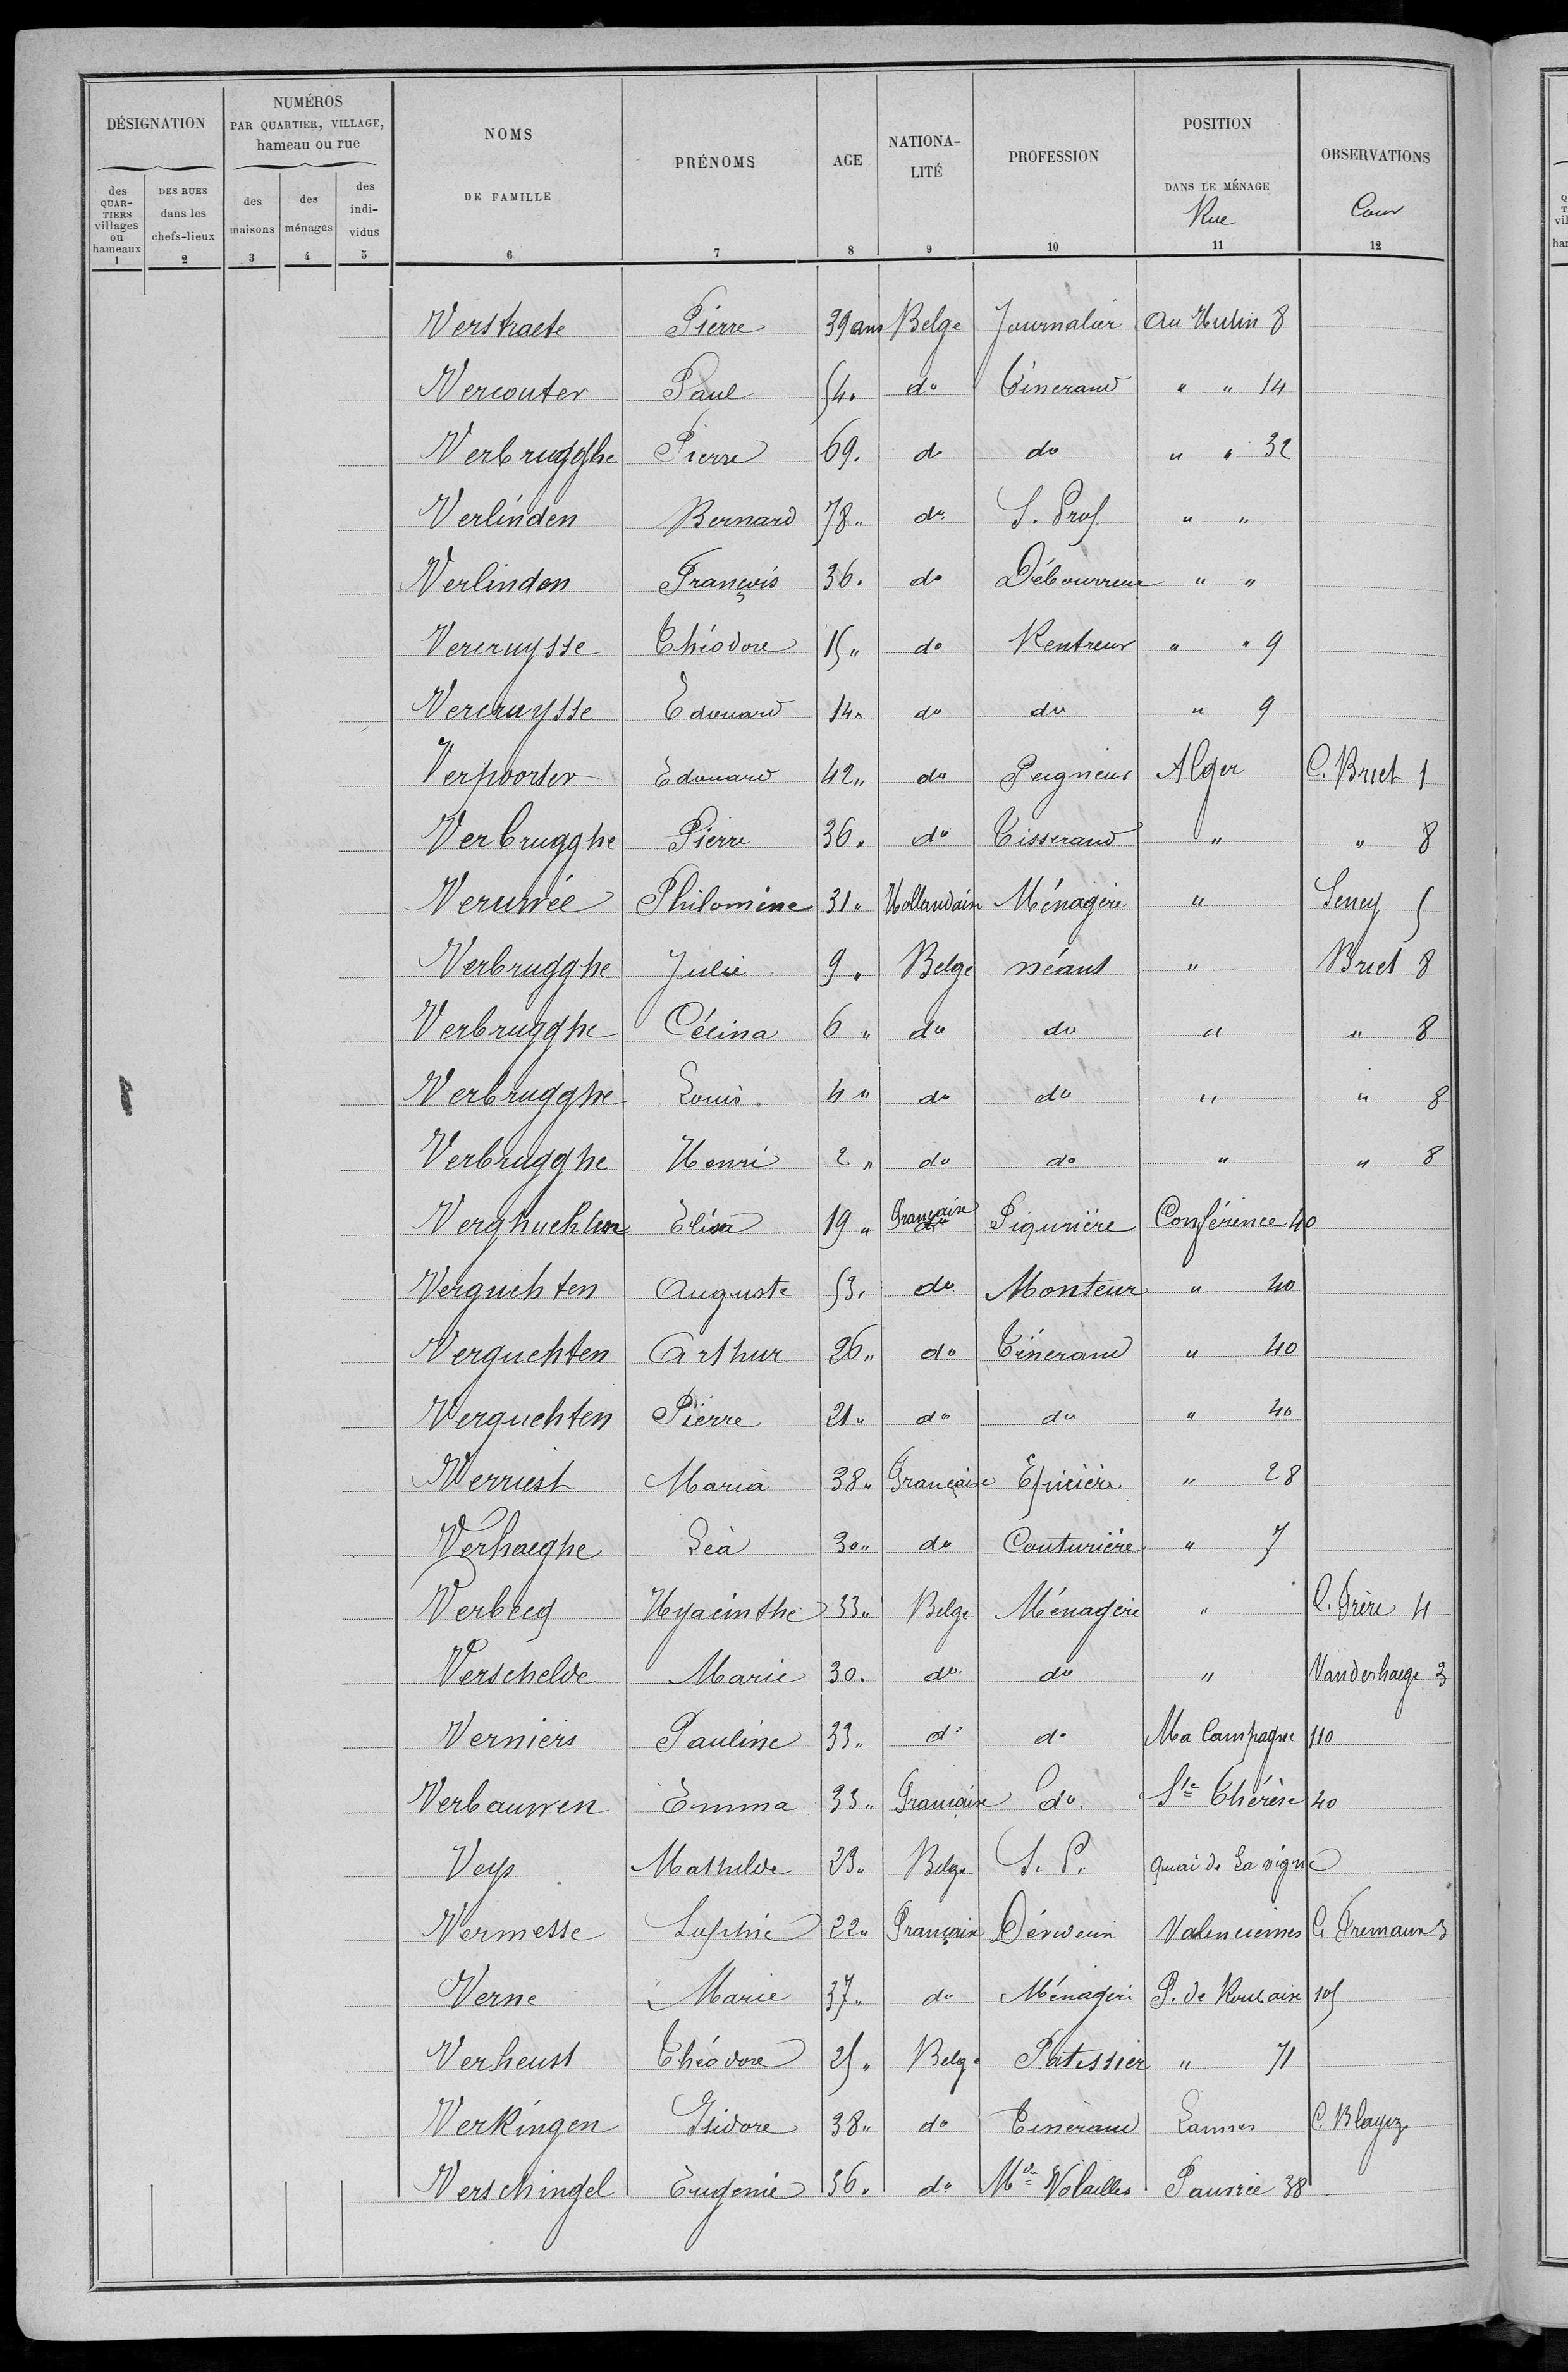 DÉSIGNATION
NUMÉROS
PAR QUARTIER, VILLAGE,
hameau ou rue
NOMS
DE FAMILLE
PRÉNOMS
AGE
NATIONA-
LITÉ
PROFESSION
POSITION
DANS LE MÉNAGE
Rue
OBSERVATIONS
Cour
des
QUAR-
TIERS
villages
ou
hameaux
DES RUES
dans les
chefs-lieux
des
maisons
des
ménages
des
indi-
vidus
1 2 3 4 5 6 7 8 9 10 11 12
Verstraete Pierre 39 ans Belge Journalier au Hutin 8
Vercouter Paul 54 " do Tisserand " " 14
Verbrugghe Pierre 69 " do do " " 32
Verlinden Bernard 78 " do S. Prof. " "
Verlinden François 36 " do Débourreur " "
Vercruysse Théodore 15 " do Rentreur " " 9
Vercruysse Edouard 14 " do do " 9
Verpoorter Edouard 42 " do Peigneur Alger C. Briet 1
Verbrugghe Pierre 36 " do Tisserand " " 8
Philomène 31 " Hollandaise Ménagère " 5
Verbrugghe Julie 9 " Belge néant " Briet 8
Verbrugghe Célina 6 " do do " " 8
Verbrugghe Louis 4 " do do " " 8
Verbrugghe Henri 2 " do do " " 8
Verghuchten Elisa 19 " Française Piqurière Conférence 40
Verguchten Auguste 53 " do Monteur " 40
Verguchten Arthur 26 " do Tisserand " 40
Verguchten Pierre 21 " do do " 40
Verriest Maria 38 " Française Epicière " 28
Verhaeghe Léa 30 " do Couturière " 7
Verbecq Hyacinthe 33 " Belge Ménagère " C. Frère 4
Verschelde Marie 30 " do do " Vanderhaege 3
Verniers Pauline 33 " do do Ma Campagne 110
Verbauwen Emma 33 " Française do Ste Thérèse 40
Veys Mathilde 23 " Belge S. P. quai de la vigne
Vermesse Sophie 22 " Française Dévideuse Valenciennes C. Fremaux 3
Verne Marie 37 " do Ménagère P. de Roubaix 105
Verheust Théodore 25 " Belge Patissier " 71
Verkingen Isidore 38 " do Tisserand Lannes
Verschingel Eugénie 36 " do Mde Volailles Pauvrée 38